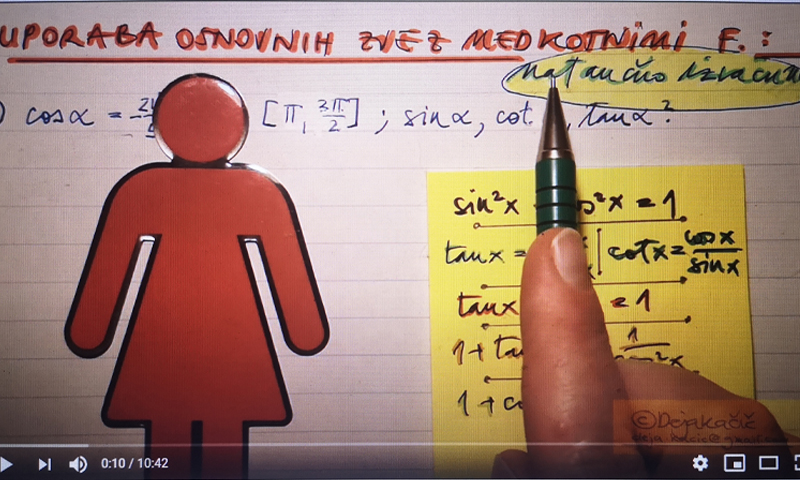 UPORABA OSNOVNIH ZVEZ MED KOTNIMI F. :
natančno izračun
) cos α = [π, 3π/2] ; sin α, cot , tan α ?
sin²x s²x = 1
tan x = cot x = cos x / sin x
tan x = 1
1 + tan 1
1 + co
©DejaKačič
0:10 / 10:42